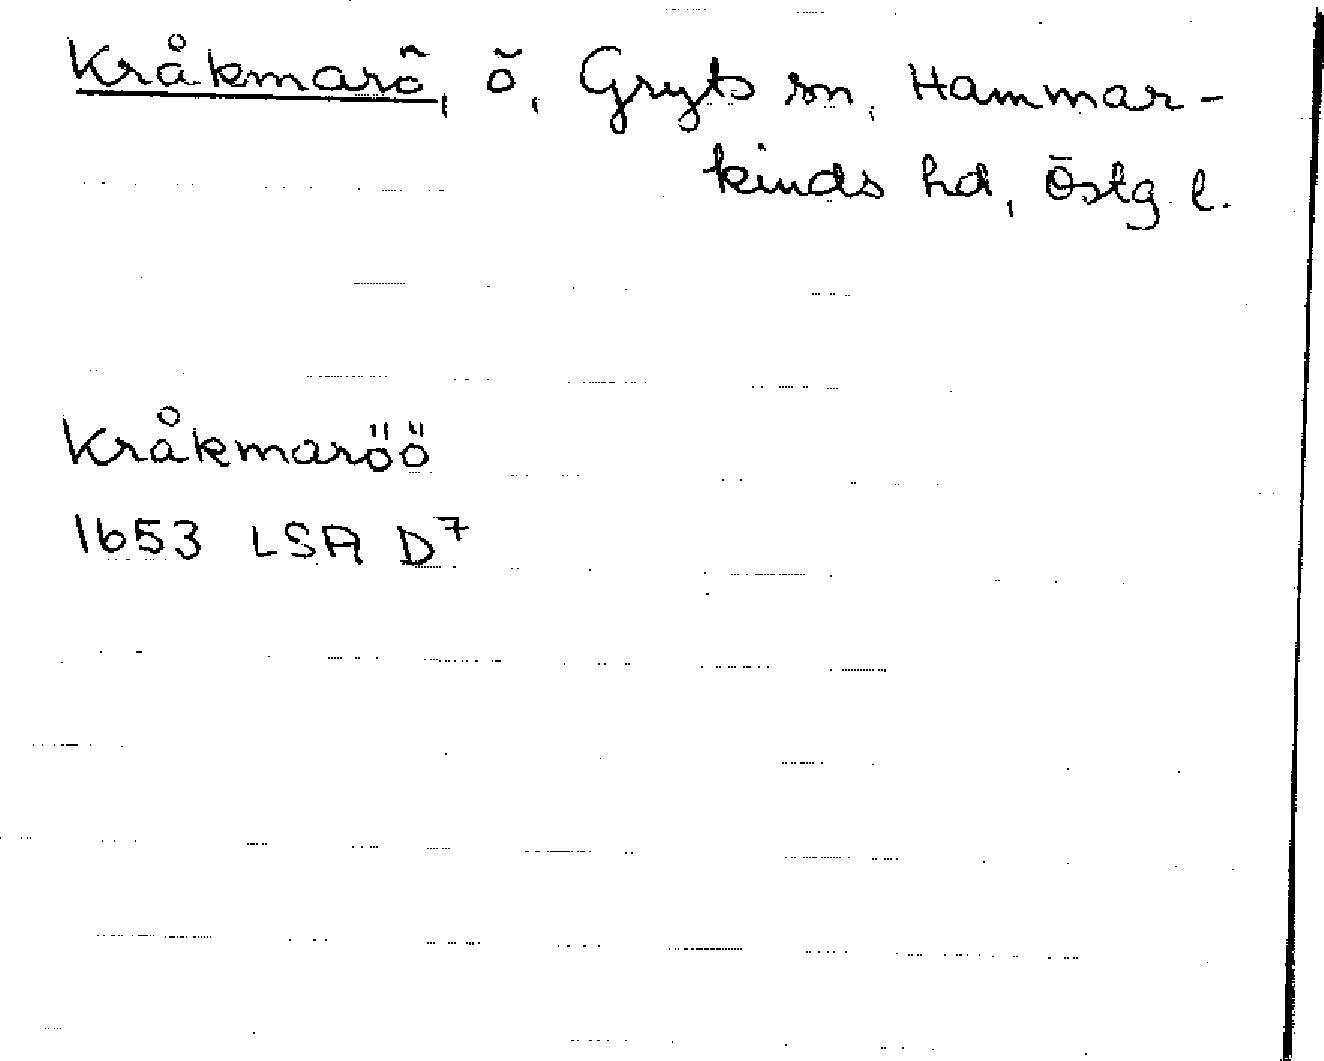 Kråkmarö, ö, Gryts sn, Hammar-
kinds hd, Östg l.
Kråkmaröö
1653 LSA D7